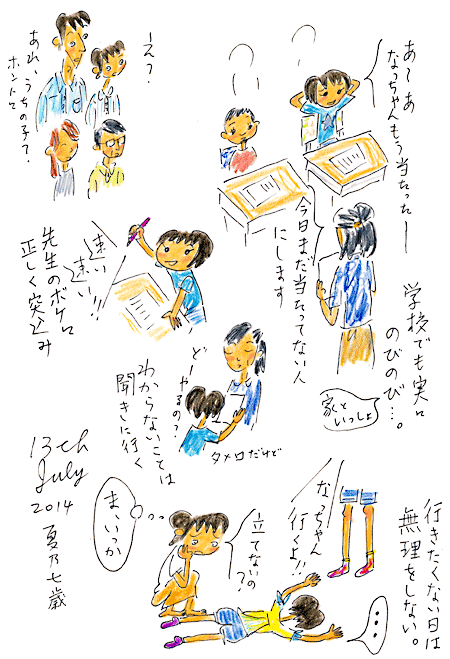 あ〜あ
なっちゃんもう当たったー
今日まだ当たってない人
にします
学校でも実に
のびのび…。
家と
いっしょ
え?
あれ、うちの子って?
ホントに
遠い
遠い!!
先生のボケに
正しく突込み
どーやるの?
タメ口だけど
わからないことは
聞きに行く
行きたくない日は
無理をしない。
なっちゃん
行くよ!!
立てないの
?
ま、いっか
…
13th
July
2014
夏乃七歳